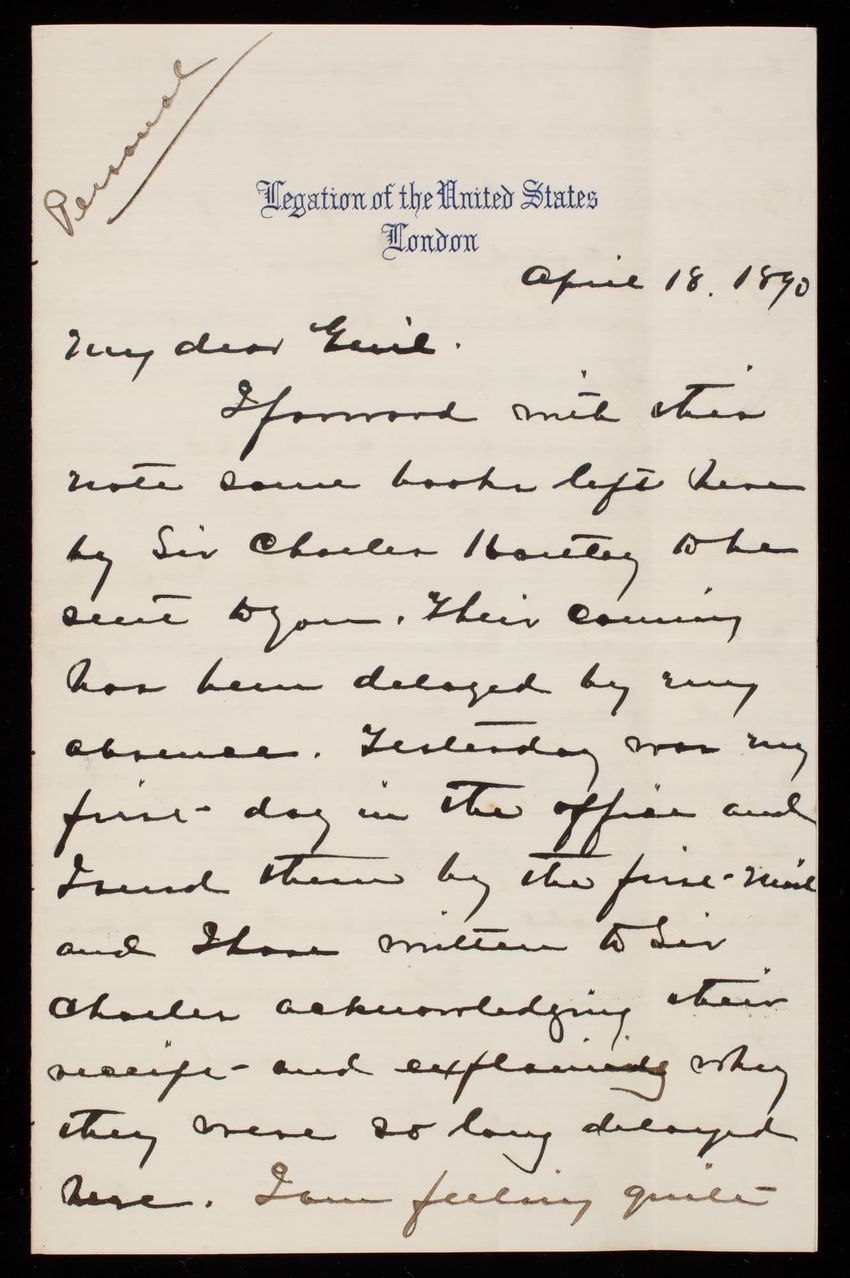 Personal
Legation of the United States
London
April 18. 1890
My dear
I forward with this
note some books left here
by Sir Charles Hartley to be
sent to you. Their coming
has been delayed by my
absence. Yesterday was my
first day in the office and
I send them by the first mail
and I have written to Sir
Charles acknowledging their
receipt and explaining why
they were so long delayed
here. I am feeling quite